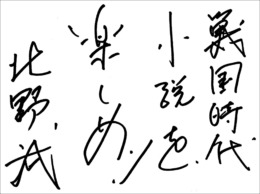 戦国時代
小説を
楽しめ!
北野武